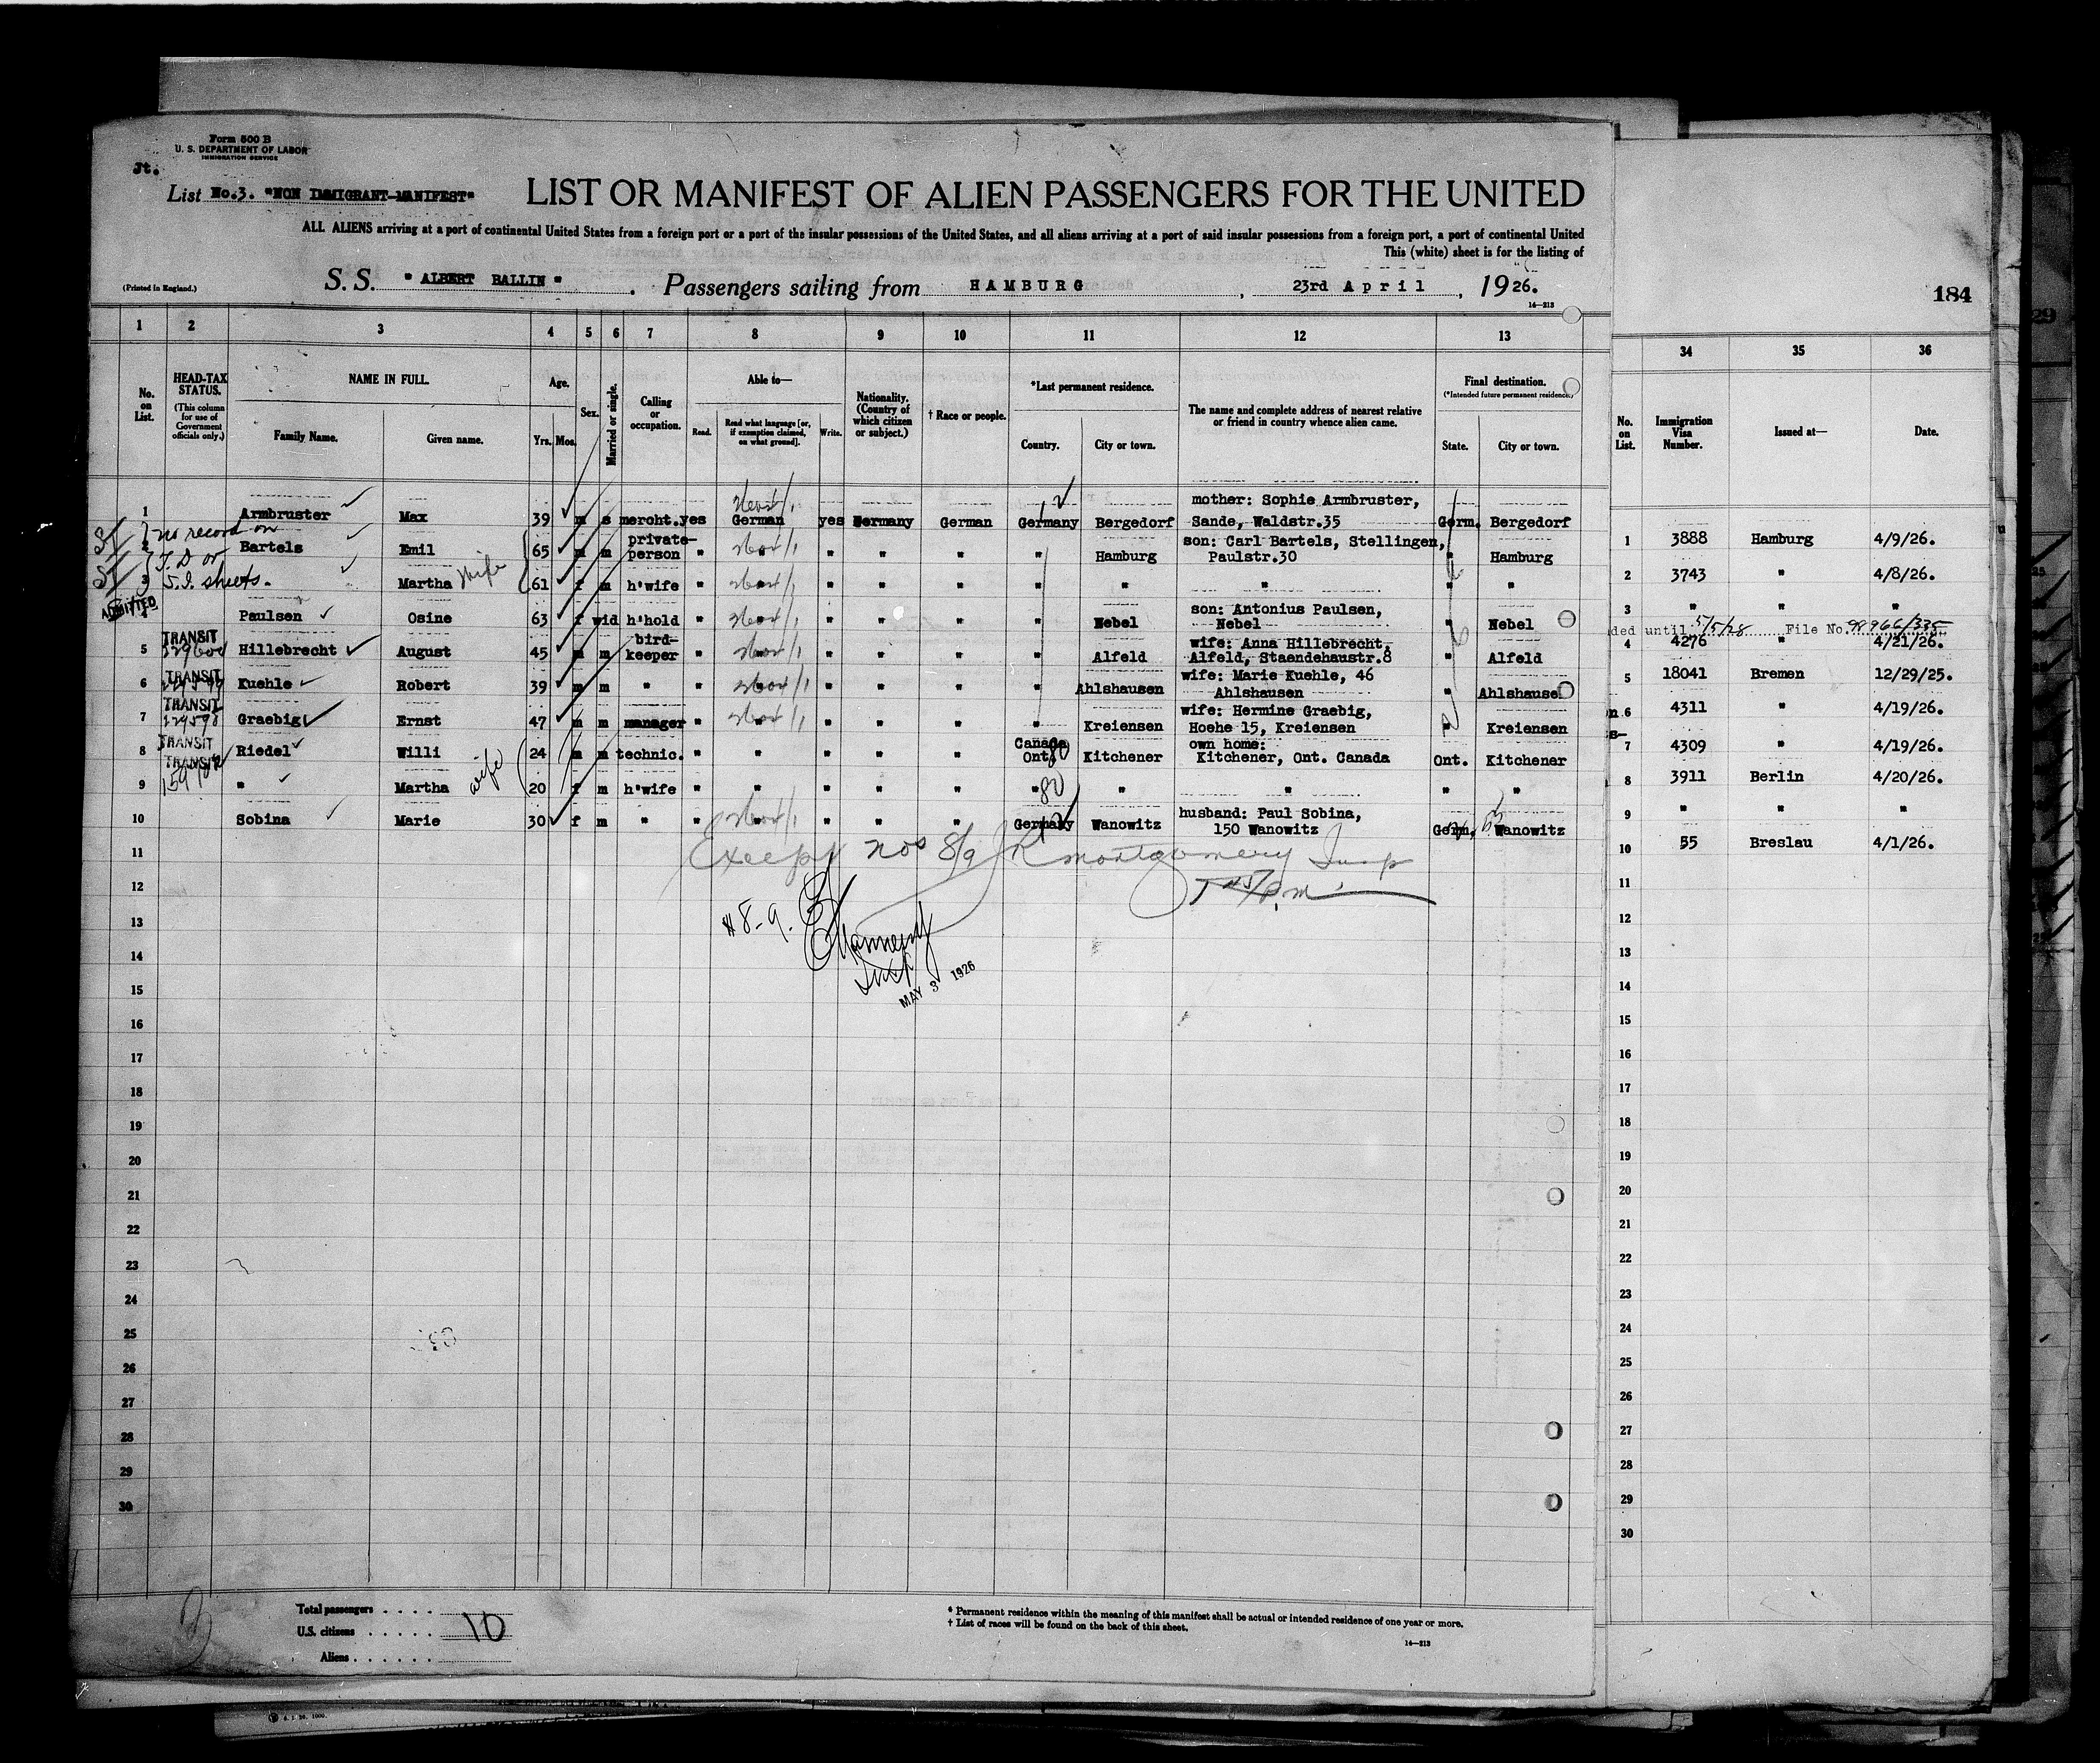 Form 500 B
U. S. DEPARTMENT OF LABOR
IMMIGRATION SERVICE
Jt.
List No.3. "NON IMMIGRANT-MANIFEST"
LIST OR MANIFEST OF ALIEN PASSENGERS FOR THE UNITED
ALL ALIENS arriving at a port of continental United States from a foreign port or a port of the insular possessions of the United States, and all aliens arriving at a port of said insular possessions from a foreign port, a port of continental United
This (white) sheet is for the listing of
(Printed in England.)
S. S. " ALBERT BALLIN " . Passengers sailing from HAMBURG , 23rd April , 1926.
14—213
184
29
1 2 3 4 5 6 7 8 9 10 11 12 13
34 35 36
No. on List.
HEAD-TAX STATUS. (This column for use of Government officials only.)
NAME IN FULL.
Family Name. Given name.
Age. Yrs. Mos.
Sex.
Married or single.
Calling or occupation.
Able to—
Read. Read what language [or, if exemption claimed, on what ground]. Write.
Nationality. (Country of which citizen or subject.)
† Race or people.
*Last permanent residence.
Country. City or town.
The name and complete address of nearest relative or friend in country whence alien came.
Final destination. (*Intended future permanent residence.)
State. City or town.
No. on List.
Immigration Visa Number.
Issued at—
Date.
mother: Sophie Armbruster,
1 Armbruster Max 39 m s mercht. yes German yes Germany German Germany Bergedorf Sande, Waldstr.35 Germ. Bergedorf
no record on
T. D or
S.I. sheets.
SI
SI
private- son: Carl Bartels, Stellingen,
2 Bartels Emil 65 m m person " " " " " " Hamburg Paulstr.30 " Hamburg
3 Martha wife 61 f m h'wife " " " " " " " " " "
ADMITTED
son: Antonius Paulsen,
4 Paulsen Osine 63 f wid h'hold " " " " " " Nebel Nebel " Nebel
TRANSIT
bird- wife: Anna Hillebrecht,
5 Hillebrecht August 45 m m keeper " " " " " " Alfeld Alfeld, Staendehausstr.8 " Alfeld
TRANSIT
wife: Marie Kuehle, 46
6 Kuehle Robert 39 m m " " " " " " " Ahlshausen Ahlshausen " Ahlshausen
TRANSIT
wife: Hermine Graebig,
7 Graebig Ernst 47 m m manager " " " " " " Kreiensen Hoehe 15, Kreiensen " Kreiensen
TRANSIT
Canada own home:
8 Riedel Willi 24 m m technic. " " " " " Ont. 80 Kitchener Kitchener, Ont. Canada Ont. Kitchener
TRANSIT
9 " Martha wife 20 f m h'wife " " " " " " 80 " " " "
husband: Paul Sobina,
10 Sobina Marie 30 f m " " " " " " Germany Wanowitz 150 Wanowitz Germ. Wanowitz
Except nos 8/9 Montgomery Insp
# 8-9.
Insp
MAY 3 1926
11
12
13
14
15
16
17
18
19
20
21
22
23
24
25
26
27
28
29
30
1 3888 Hamburg 4/9/26.
2 3743 " 4/8/26.
3 " " "
ded until 5/5/28 File No. 98966/335
4 4276 " 4/21/26.
5 18041 Bremen 12/29/25.
6 4311 " 4/19/26.
7 4309 " 4/19/26.
8 3911 Berlin 4/20/26.
9 " " "
10 55 Breslau 4/1/26.
11
12
13
14
15
16
17
18
19
20
21
22
23
24
25
26
27
28
29
30
Total passengers . . . .
U.S. citizens . . . . . 10
Aliens . . . . . .
* Permanent residence within the meaning of this manifest shall be actual or intended residence of one year or more.
† List of races will be found on the back of this sheet.
14—213